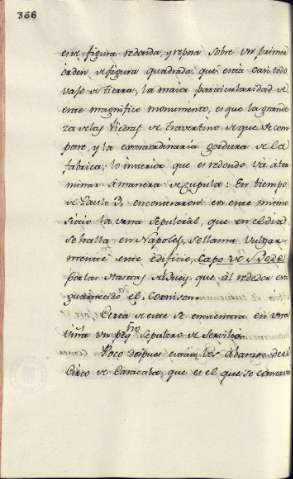 366
en figura redonda, y reposa sobre un primer
orden de figura quadrada, que está casi todo
vajo de tierra; la maior particularidad de
este magnifico monumento, es que la grande
za de las Piedras de Travertino de que se com
pone, y la extraordinaria gordura de la
fabrica; lo interior que es redondo va á ter
minar á manera de cupula: En tiempo
de Paulo 3º encontraron en este mismo
sitio la urna sepulcral, que en el dia
se halla en Napoles, se llama vulgar
mente este edificio, Capo de
por las
guarnecido el Cornison.
Cerca de este se encuentra en otra
viña un peqᵑᵒ sepulcro de Servilio.
Poco despues están los
Circo de Caracala, que es el que se conserva